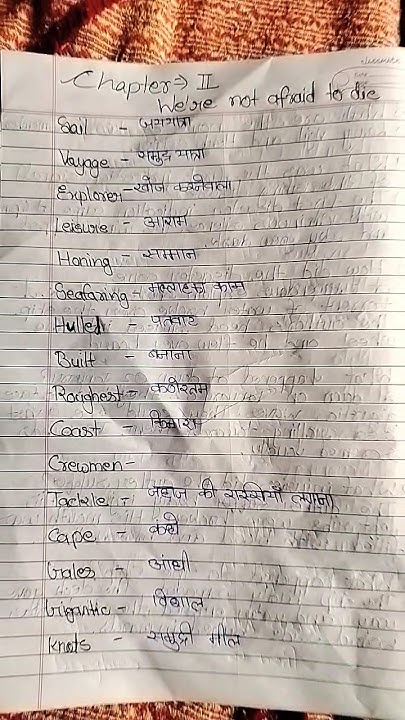 Chapter → II
We're not afraid to die
Sail - जलयात्रा
Voyage - समुद्र यात्रा
Explorer - खोज करनेवाला
Leisure - आराम
Honing - सम्मान
Seafaring - मल्लाहका काम
Hulled - पतवार
Built - बनाना
Roughest - कठोरतम
Coast - किनारा
Crewmen -
Tackle - जहाज की रस्सियाँ लगाना
Cape -
Gales - आंधी
Gigantic - विशाल
Knots - समुद्री मील